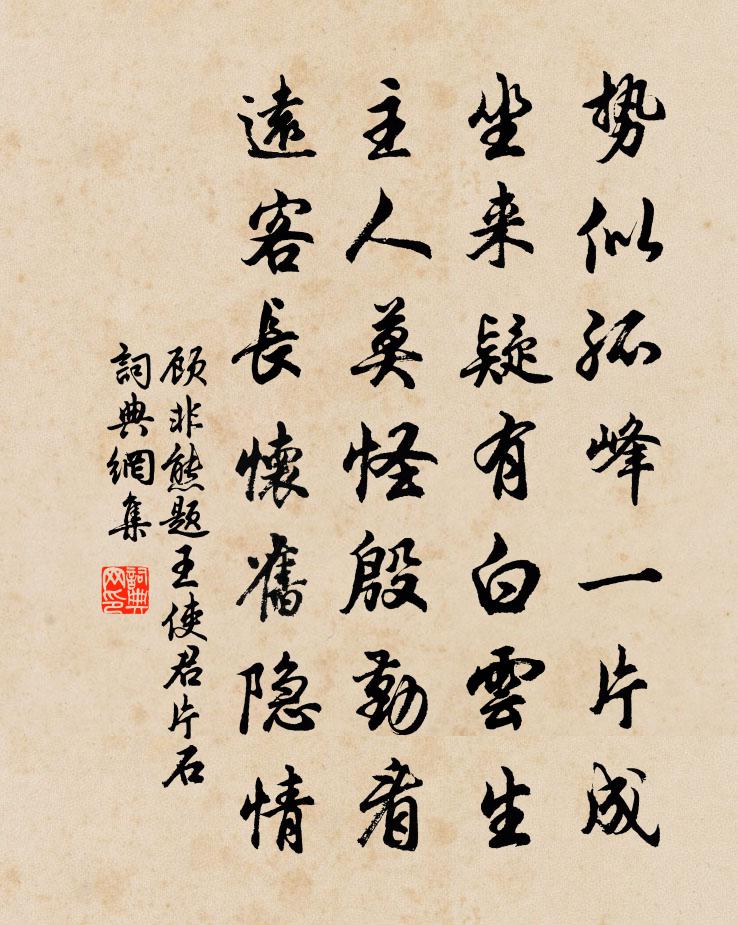 势似孤峰一片成
坐来疑有白雲生
主人莫怪殷勤看
遠客長懷舊隐情
顾非熊题王使君片石
詞典網集
詞典
网印